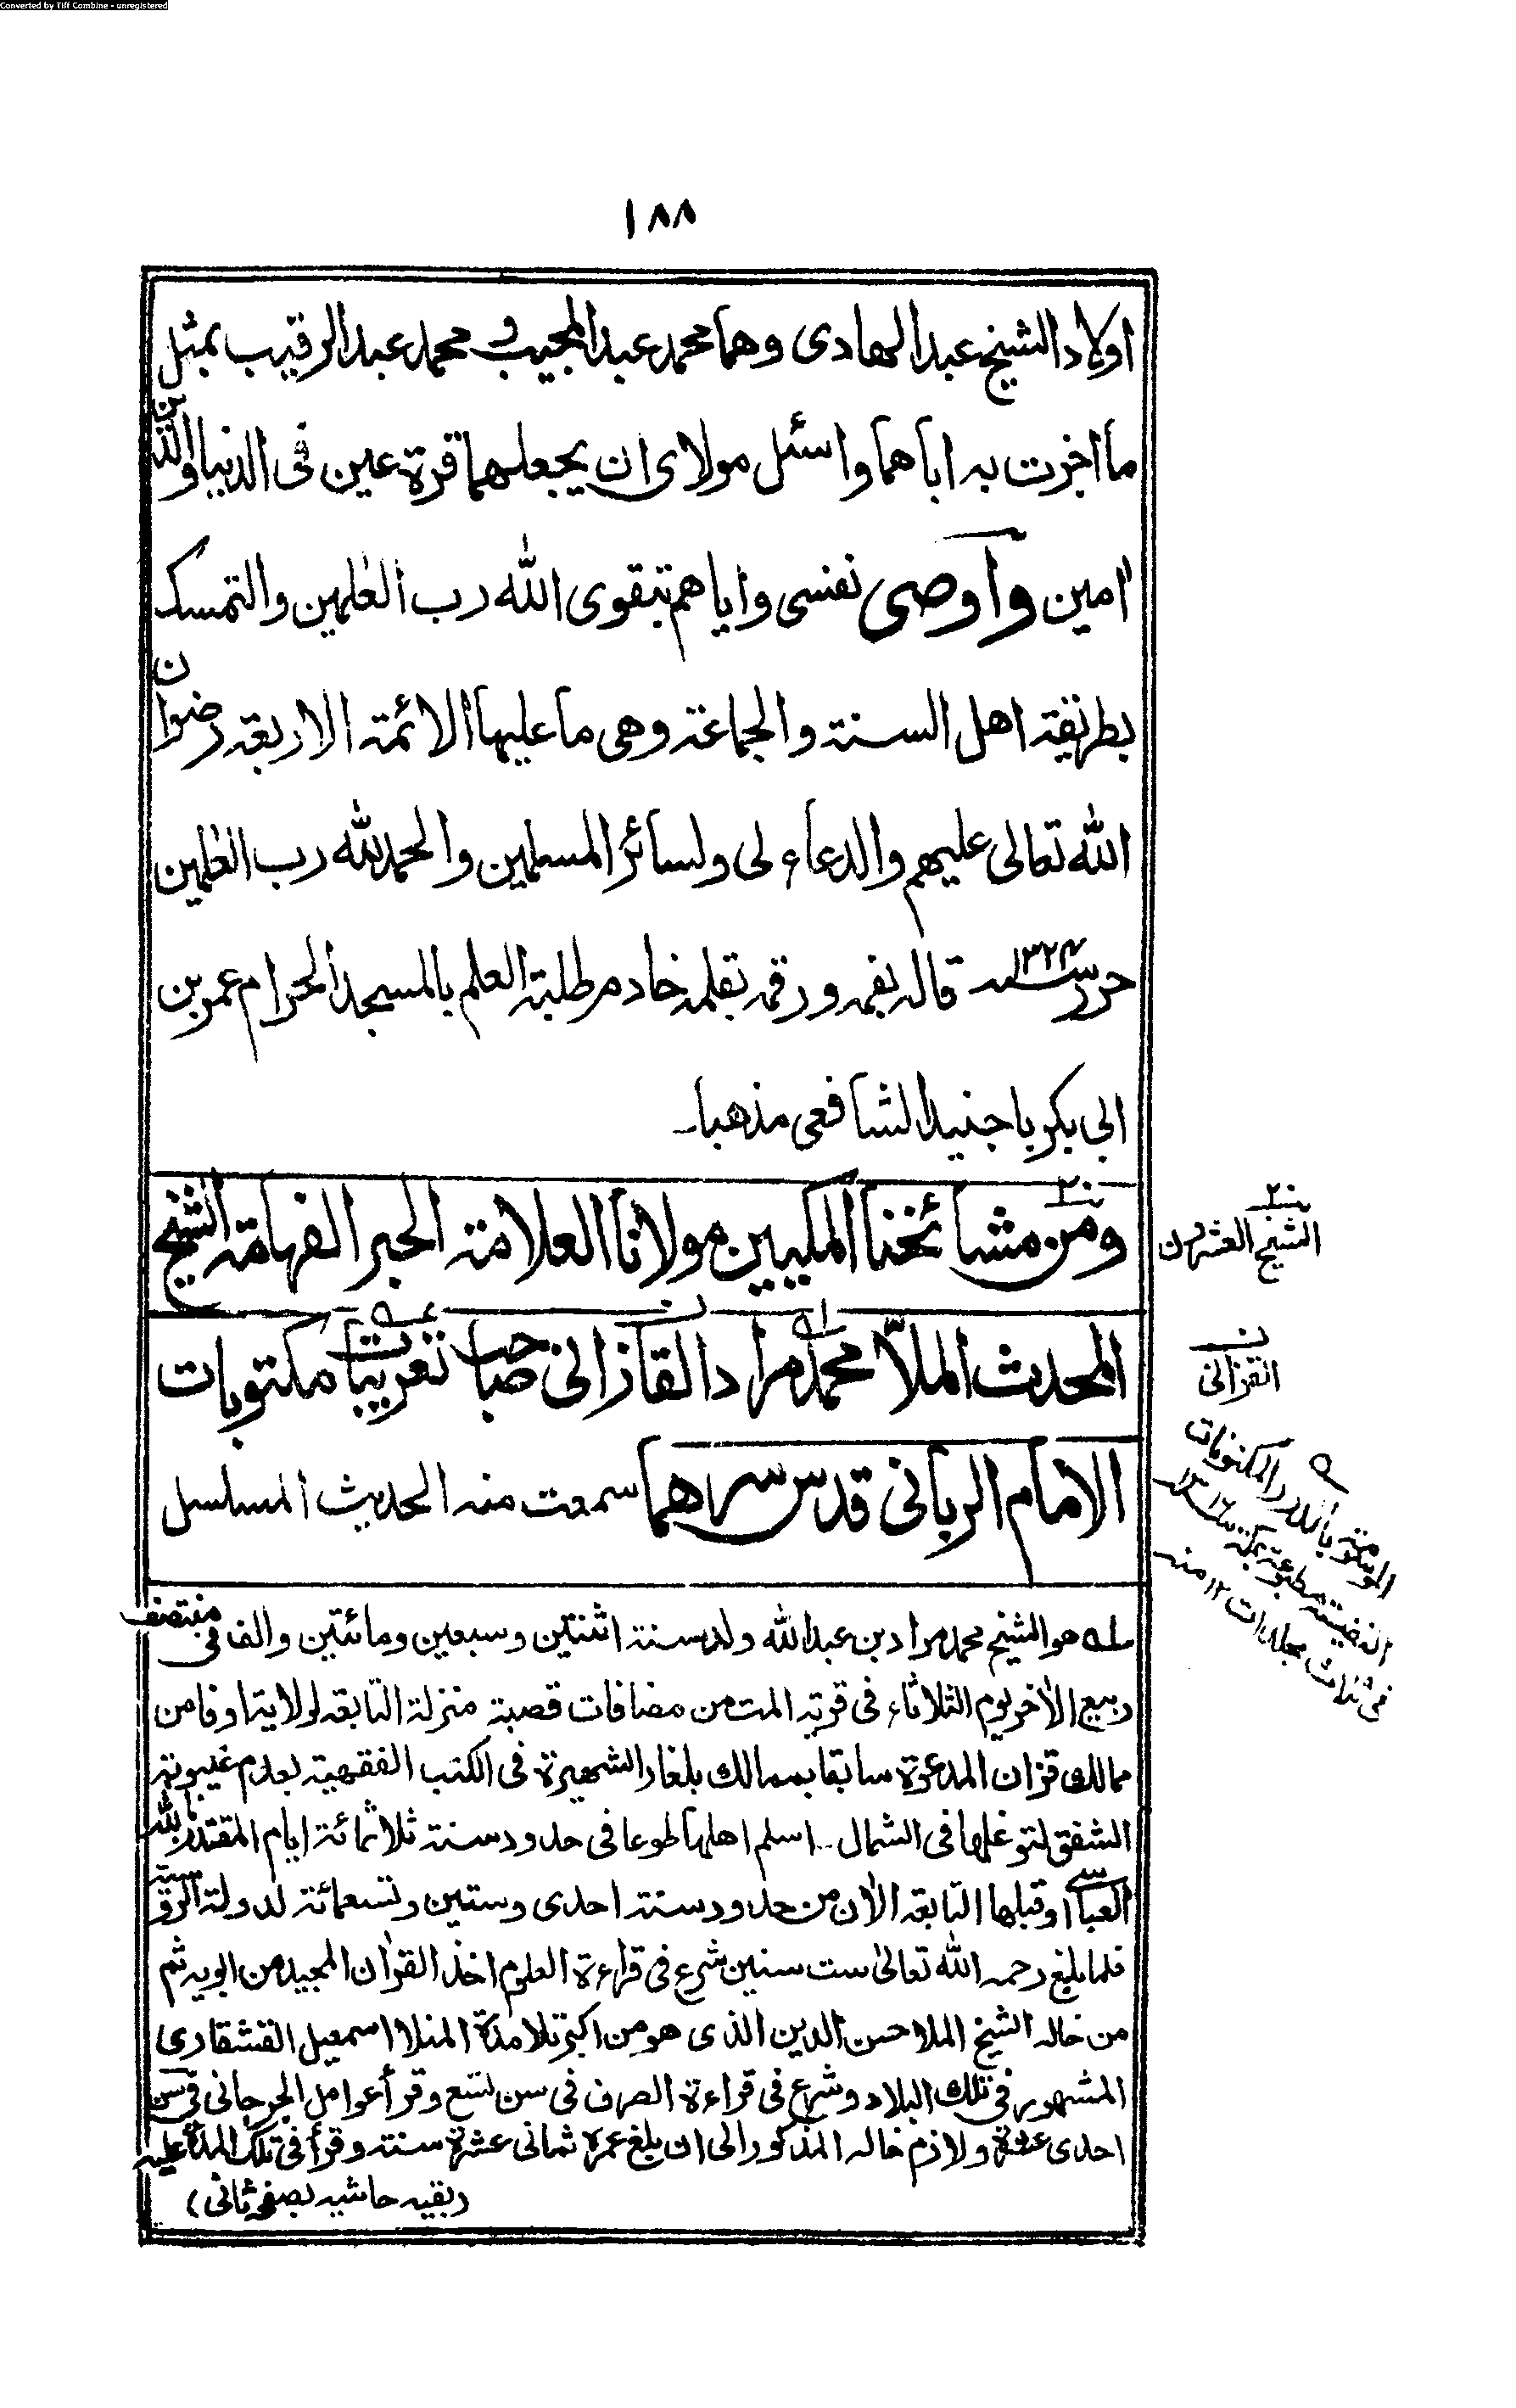 Converted by Tiff Combine - unregistered
١٨٨
اولاد الشيخ عبد الهادى وهما محمد عبد المجيب و محمد عبد الرقيب بمثل
ما اجزت به اباهما واسئل مولاى ان يجعلهما قرة عين فى الدنيا والدين
اٰمين واوصى نفسى واياهم بتقوى الله رب العٰلمين والتمسك
بطريقة اهل السنة والجماعة وهى ما عليها الائمة الاربعة رضوان
الله تعالى عليهم والدعاء لى ولسائر المسلمين والحمد لله رب العٰلمين
حرر سنه ١٣٢٤ قاله بفمه ورقمه بقلمه خادم طلبة العلم بالمسجد الحرام عمر بن
ابى بكر باجنيد الشافعى مذهبا۔
ومن مشائخنا المكيين مولانا العلامة الحبر الفهامة الشيخ
المحدث الملا محمد مراد القازانى صاحب تعريب مكتوبات
الامام الربانى قدس سرهما سمعت منه الحديث المسلسل
٢٠
الشيخ العشرون
ن
القزانى
المكنونات
الموسومة بالدرر
النفيسة مطبوعة بمكة سنه ١٣١٦
فى ثلاث مجلدات ١٢ منه
له هو الشيخ محمد مراد بن عبد الله ولد سنة اثنتين وسبعين ومائتين والف فى منتصف
ربيع الاٰخر يوم الثلاثاء فى قرية المت من مضافات قصبة منزلة التابعه لولاية اوفا من
ممالك قزان المدعوة سابقا بممالك بلغار الشهيرة فى الكتب الفقهية بعدم غيبوبة
الشفق لتوغلها فى الشمال ۔ اسلم اهلها طوعا فى حدود سنة ثلاثمائة ايام المقتدر بالله
العباسى او قبلها التابعه الاٰن من حدود سنة احدى وستين وتسعمائة لدولة الروسية
فلما بلغ رحمه الله تعالىٰ ست سنين شرع فى قراءة العلوم اخذ القراٰن المجيد من ابويه ثم
من خاله الشيخ الملا حسن الدين الذى هو من اكبر تلامذة المنلا اسمعيل القشقارى
المشهور فى تلك البلاد وشرع فى قراءة الصرف فى سن تسع وقرأ عوامل الجرجانى فى سن
احدى عشرة ولازم خاله المذكور الى ان بلغ عمره ثمانى عشرة سنة وقرأ فى تلك المدة عليه
(بقيه حاشيه بصفحه ثانى)